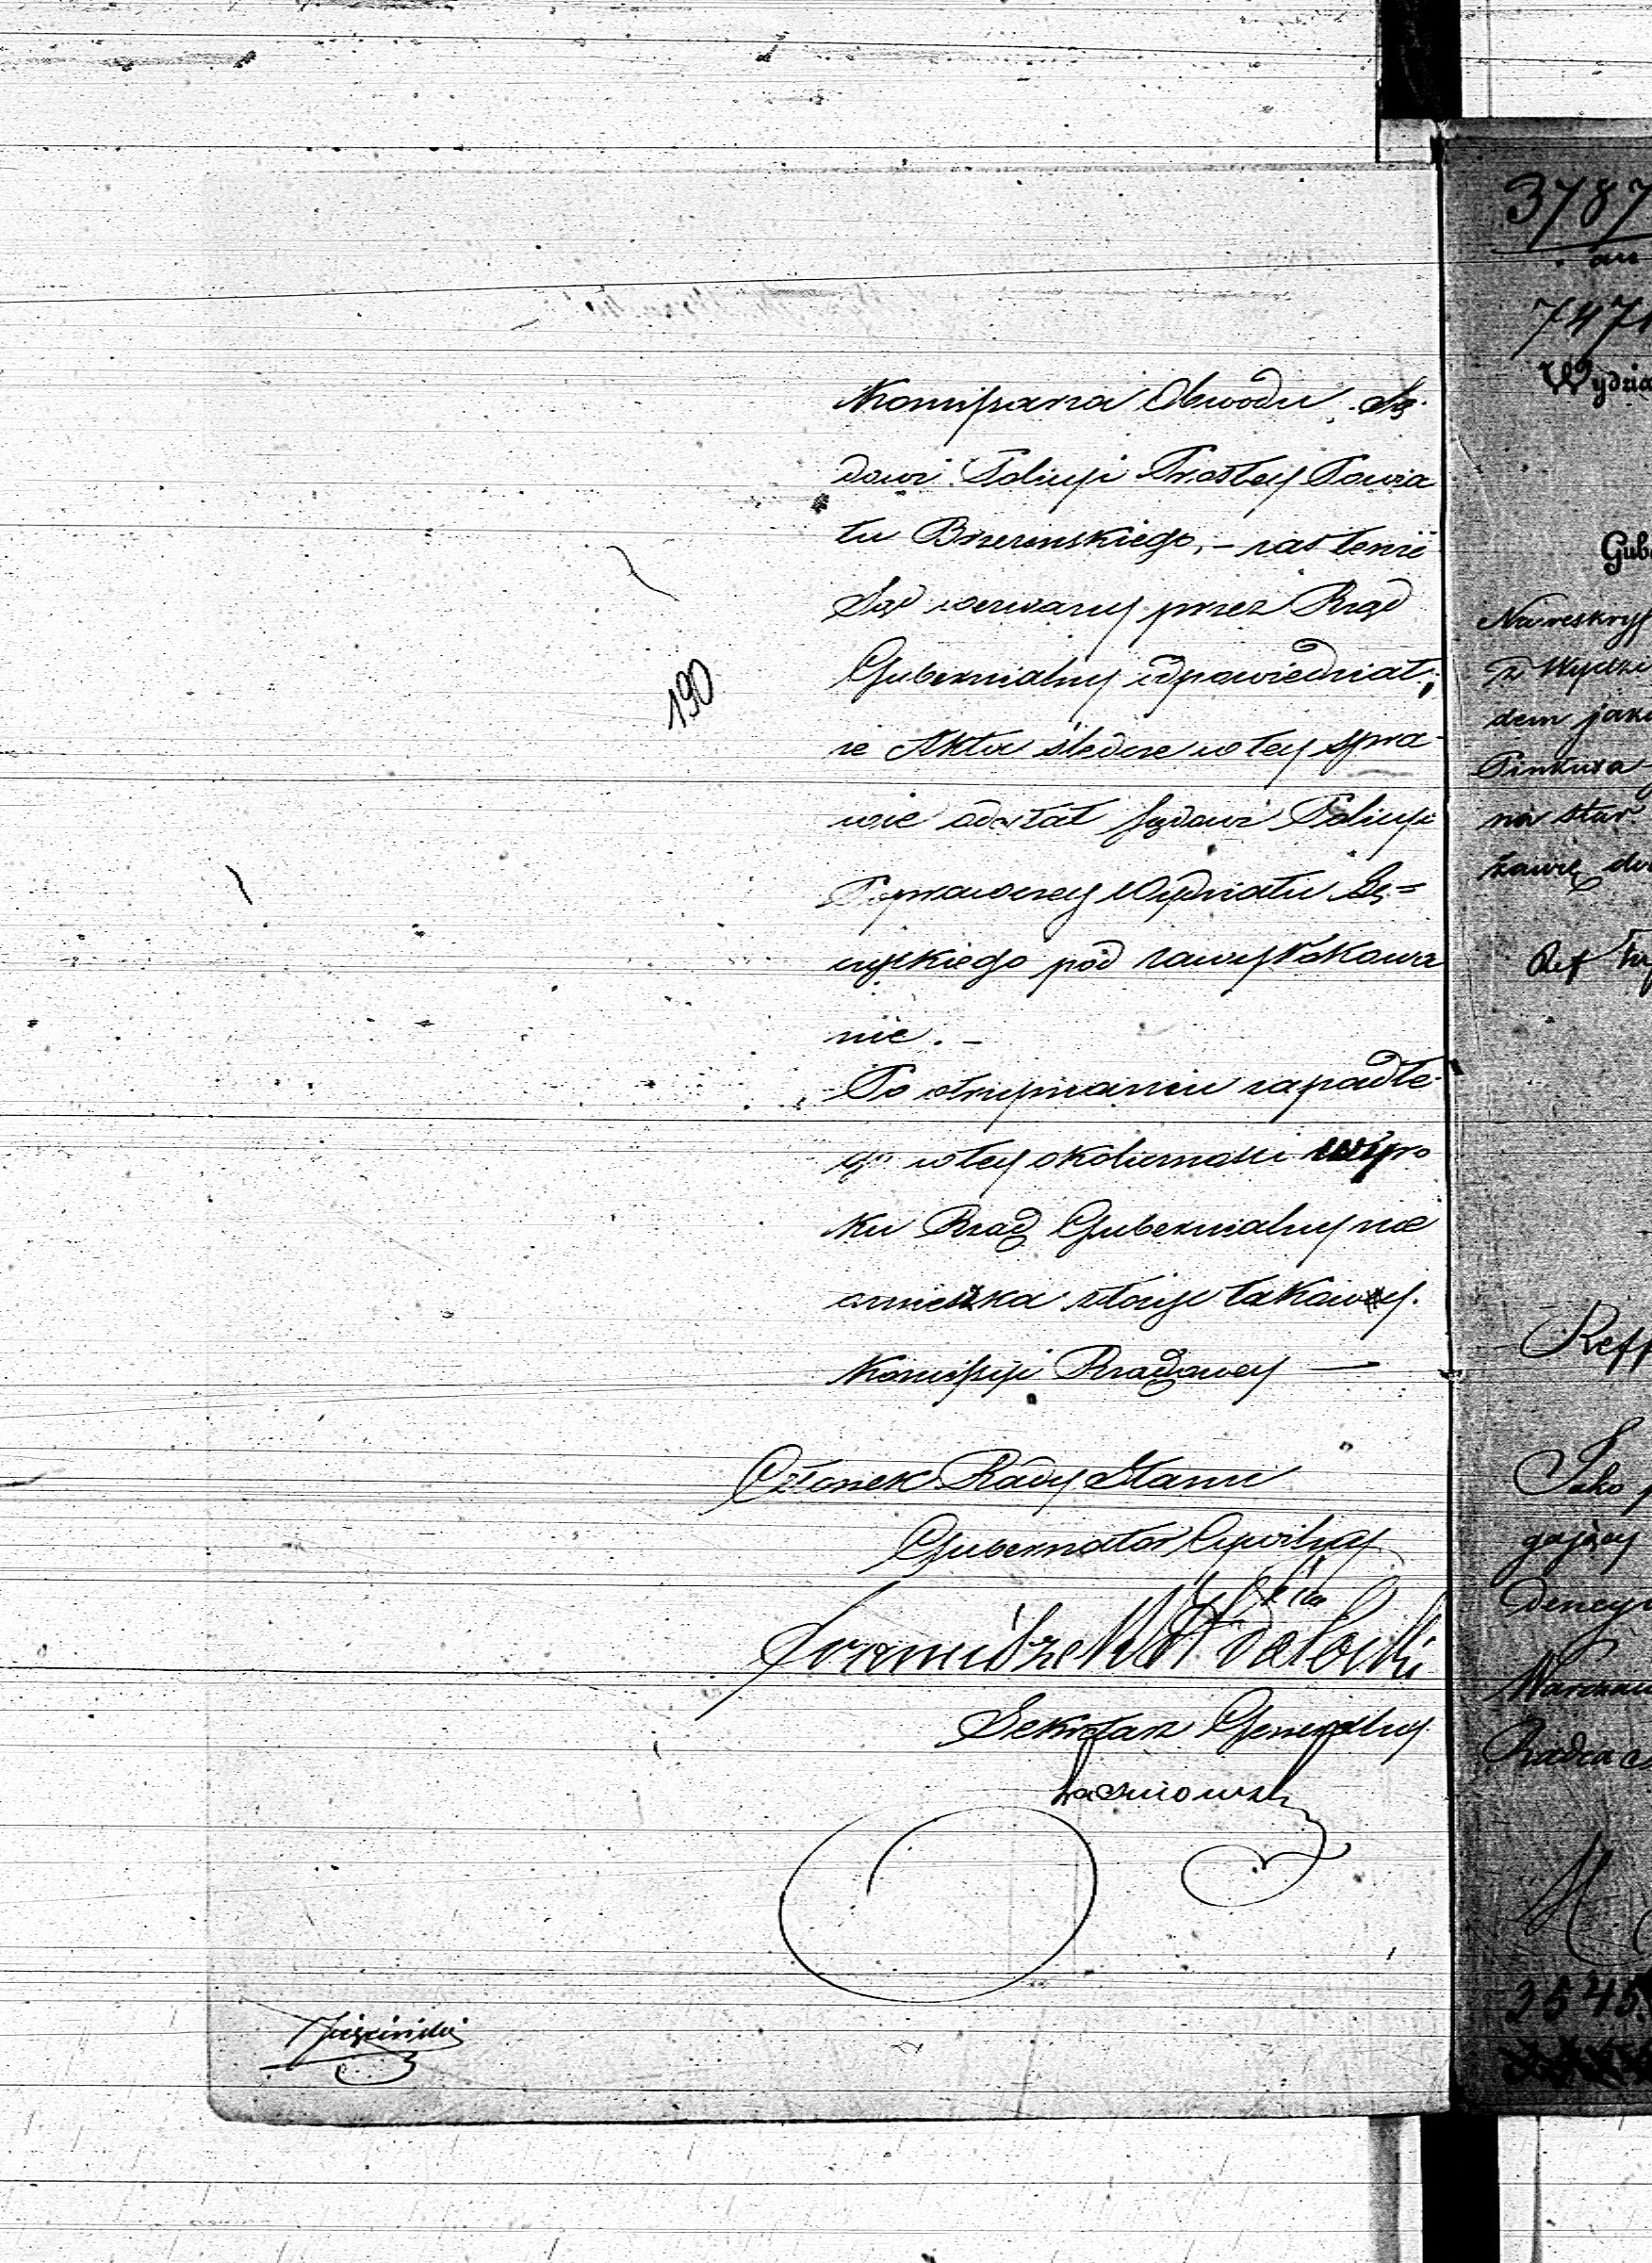 Kommissarza Obwodu Są-
dowi Policyi Prostey Powia
tu Brzezinskiego, – zaś tenże
Sąd wezwany przez Rząd
Gubernialny odpowiedział,
że Akta śledcze w tey spra-
wie odesłał Sądowi Policyi
Poprawczey Wydziału Łę=
czyckiego pod zawyrokowa
nie. –
Po otrzymaniu zapadłe-
go w tey okoliczności wyro
ku Rząd Gubernialny nie
omieszka złożyć takowey.
Kommissyi Rządowey —
190
Członek Rady Stanu
Gubernator Cywilny
Sekretarz Generalny
3787
747
Wydzia
Gub
Na reskryp
z Wydzi
dem jak
Pinkusa
na star
żawę do
Ref
Reff
Jako p
gający
dencyi
Warszaw
Radca